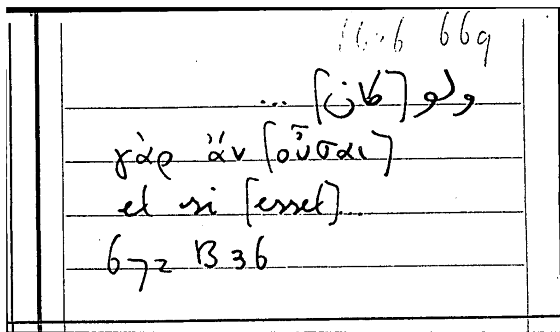 669
ولو [كان] ...
γὰρ ἂν [οὖσαι]
et si [esset]...
672 B 36